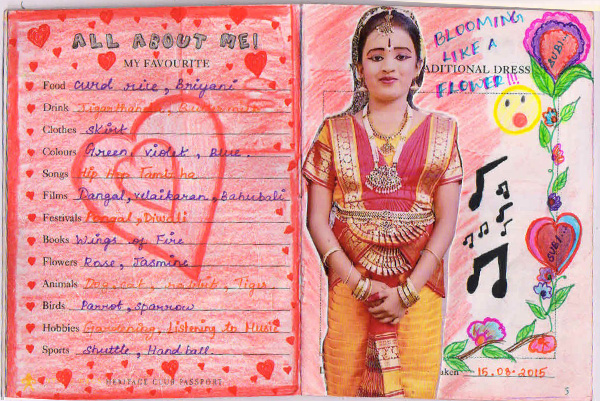 ALL ABOUT ME!
MY FAVOURITE
Food curd rice, Briyani
Drink Jigarthanda,
Clothes skirt
Colours Green, violet, Blue.
Songs Hip Hop Tamizha
Films Dangal, velaikaran, Bahubali
Festivals Pongal, Diwali
Books Wings of Fire
Flowers Rose, Jasmine
Animals Dog, cat, rabbit, Tiger
Birds Parrot, sparrow
Hobbies Gardening, Listening to Music
Sports shuttle, Hand ball.
HERITAGE CLUB PASSPORT
BLOOMING
LIKE A
FLOWER!!!
ADITIONAL DRESS
SUBI...
SUBI...
aken 15.08.2015
5